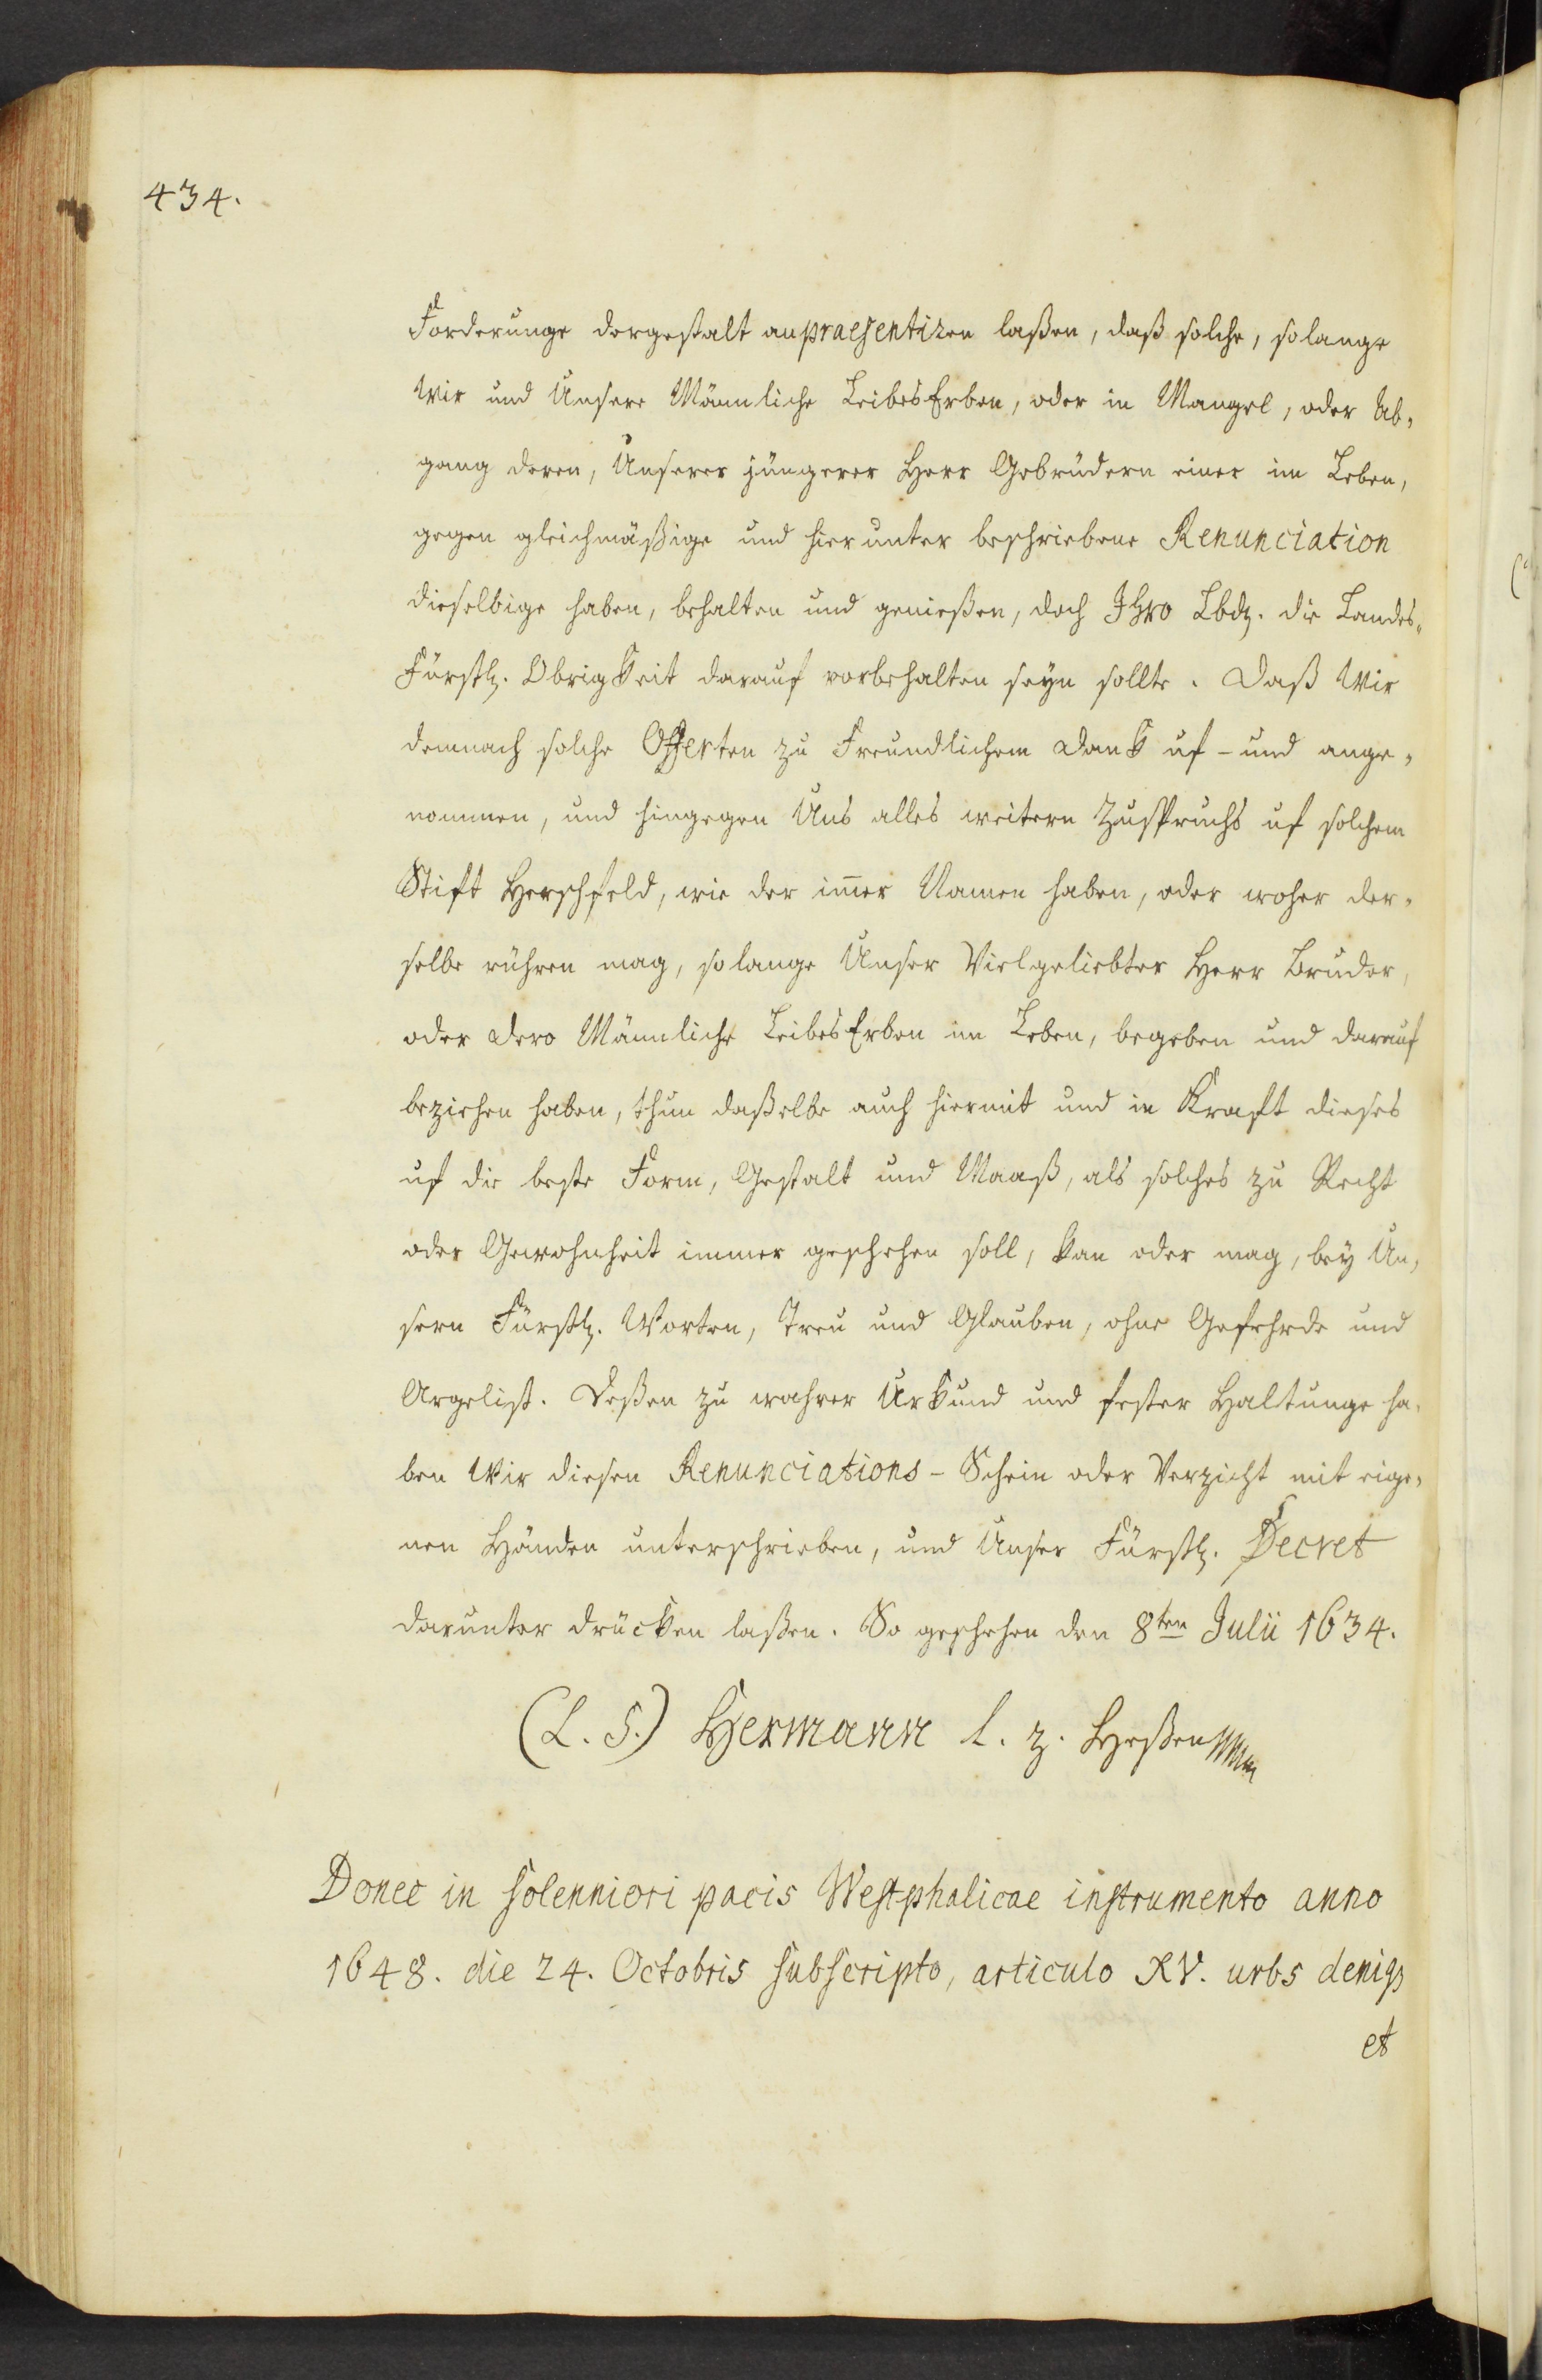 434.
Forderunge dergestalt anpraesentiren laßen, daß solche, solange
Wir und Unsere Männliche LeibesErben, oder in Mangel, oder Ab-
gang deren, Unserer jüngerer Herr Gebrüdern einer im Leben,
gegen gleichmäßige und hierunter beschriebene Renunciation
dieselbige haben, behalten und genießen, doch Ihro Lbdq. die Landes-
Fürstl. Obrigkeit darauf vorbehalten seyn sollte. Daß Wir
demnach solche Offerten zu Freundlichem Dank uf- und ange-
nommen, und hingegen Uns alles weitern Zuspruchs uf solchem
Stift Herschfeld, wie der im̅er Namen haben, oder woher der-
selbe rühren mag, solange Unser Vielgeliebter Herr Bruder,
oder Dero Männliche LeibesErben im Leben, begeben und darauf
beziehen haben, thun daßelbe auch hiermit und in Kraft dieses
uf die beste Form, Gestalt und Maaß, als solches zu Recht
oder Gewohnheit immer geschehen soll, kan oder mag, bey Un-
sern Fürstl. Worten, Treu und Glauben, ohne Gefehrde und
Argelist. Deßen zu wahrer Urkund und fester Haltunge ha-
ben Wir diesen Renunciations-Schein oder Verzicht mit eige-
nen Händen unterschrieben, und Unser Fürstl. Secret
darunter drücken laßen. So geschehen den 8ten Julii 1634.
(L. S.) Hermann L. z. Heßen
Donec in solenniori pacis Westphalicae instrumento anno
1648. die 24. Octobris subscripto, articulo XV. urbs deniqz
et